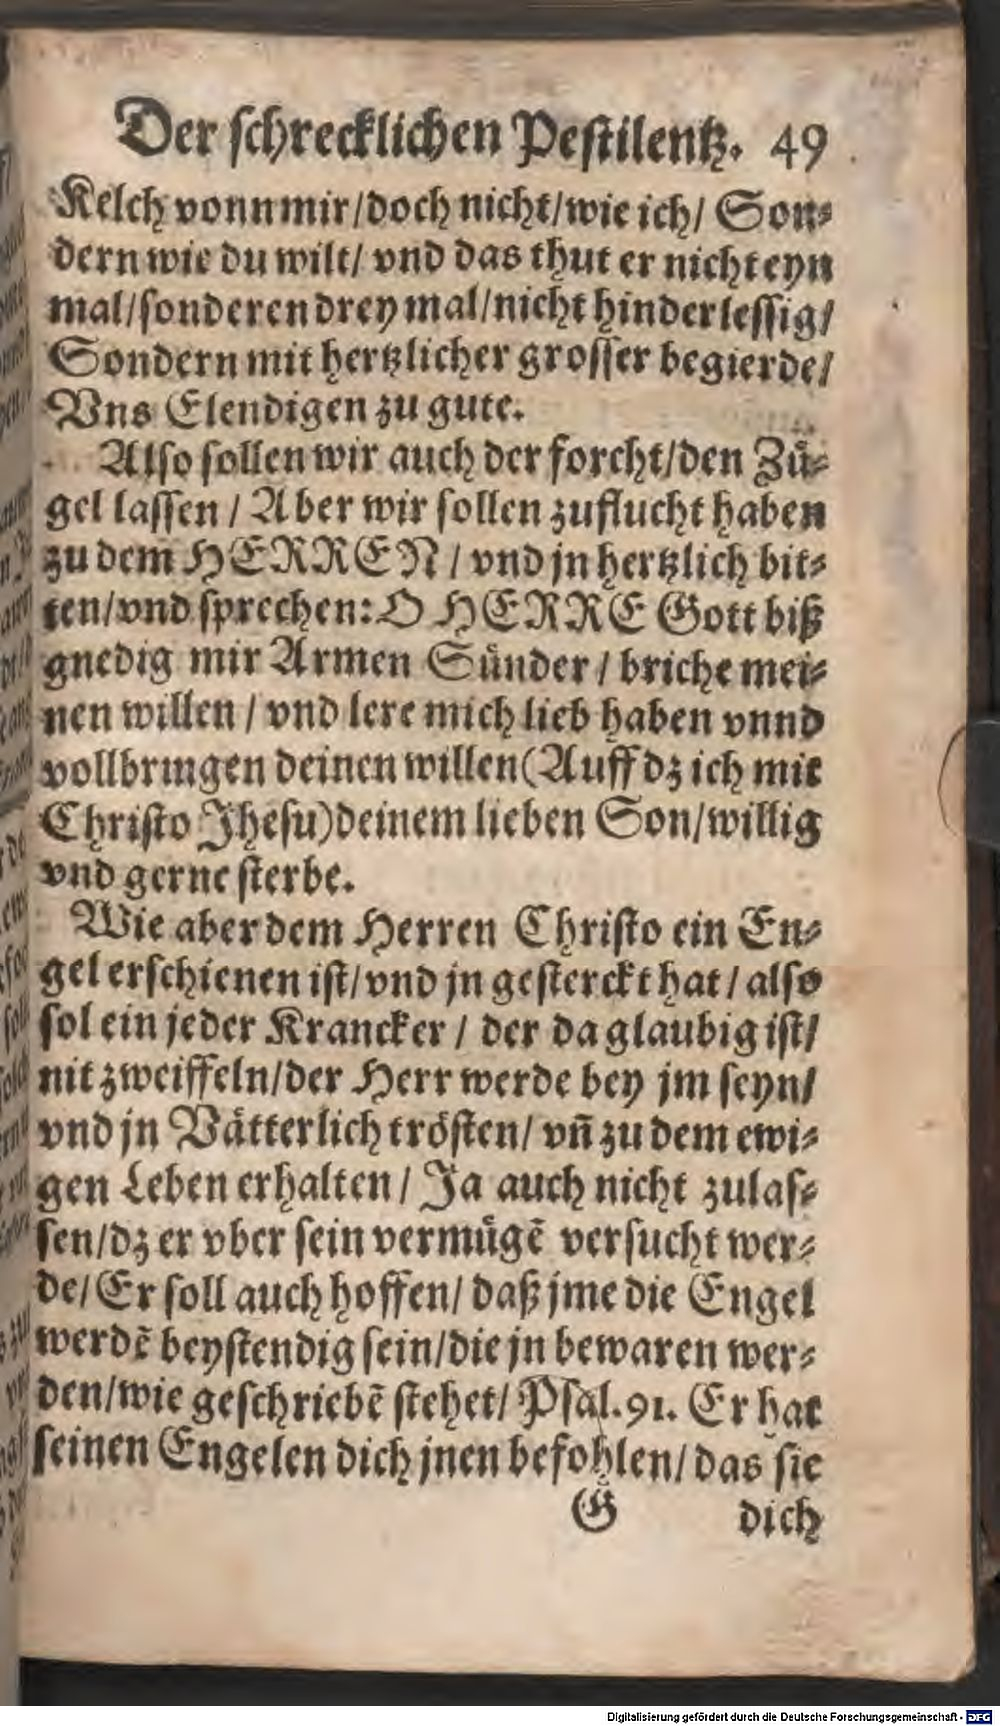 Der schrecklichen Pestilentz. 49
Kelch vonn mir/doch nicht/wie ich/ Son⸗
dern wie du wilt/ vnd das thut er nicht eyn
mal/sonderen drey mal/nicht hinderlessig/
Sondern mit hertzlicher grosser begierde/
Vns Elendigen zu gute.
Also sollen wir auch der forcht/den Zuͤ⸗
gel lassen / Aber wir sollen zuflucht haben
zu dem HERREN / vnd jn hertzlich bit⸗
ten/vnd sprechen: O HERRE Gott biß
gnedig mir Armen Suͤnder / briche mei⸗
nen willen / vnd lere mich lieb haben vnnd
vollbringen deinen willen (Auff dz ich mit
Christo Jhesu) deinem lieben Son/willig
vnd gerne sterbe.
Wie aber dem Herren Christo ein En⸗
gel erschienen ist/vnd jn gesterckt hat / also
sol ein jeder Krancker / der da glaubig ist/
nit zweiffeln/der Herr werde bey jm seyn/
vnd jn Vaͤtterlich troͤsten/ vñ zu dem ewi⸗
gen Leben erhalten / Ja auch nicht zulas⸗
sen/dz er vber sein vermuͤgẽ versucht wer⸗
de/ Er soll auch hoffen/ daß jme die Engel
werdẽ beystendig sein/die jn bewaren wer⸗
den/wie geschriebẽ stehet/ Psal. 91. Er hat
seinen Engelen dich jnen befohlen/ das sie
G dich
Digitalisierung gefördert durch die Deutsche Forschungsgemeinschaft - DFG